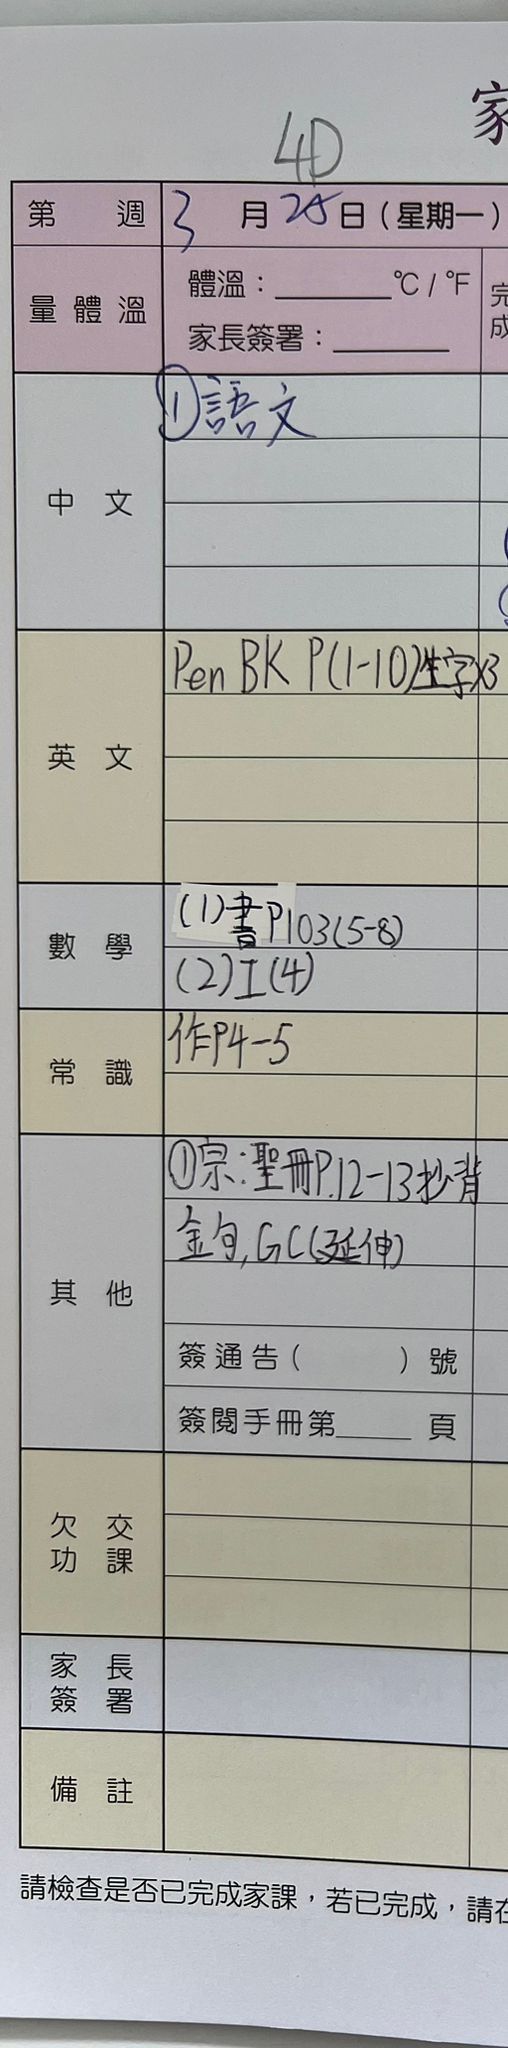 家
4D
第 週 3 月 25 日（星期一）
量體溫 體溫：______ °C / °F 完成
家長簽署：______
中文 ①語文
英文 Pen BK P(1-10)生字x3
數學 (1)書P103(5-8)
(2)工(4)
常識 作P4-5
其他 ①宗:聖冊P.12-13抄背
金句,GC(延伸)
簽通告（ ）號
簽閱手冊第____頁
欠交功課
家長簽署
備註
請檢查是否已完成家課，若已完成，請在